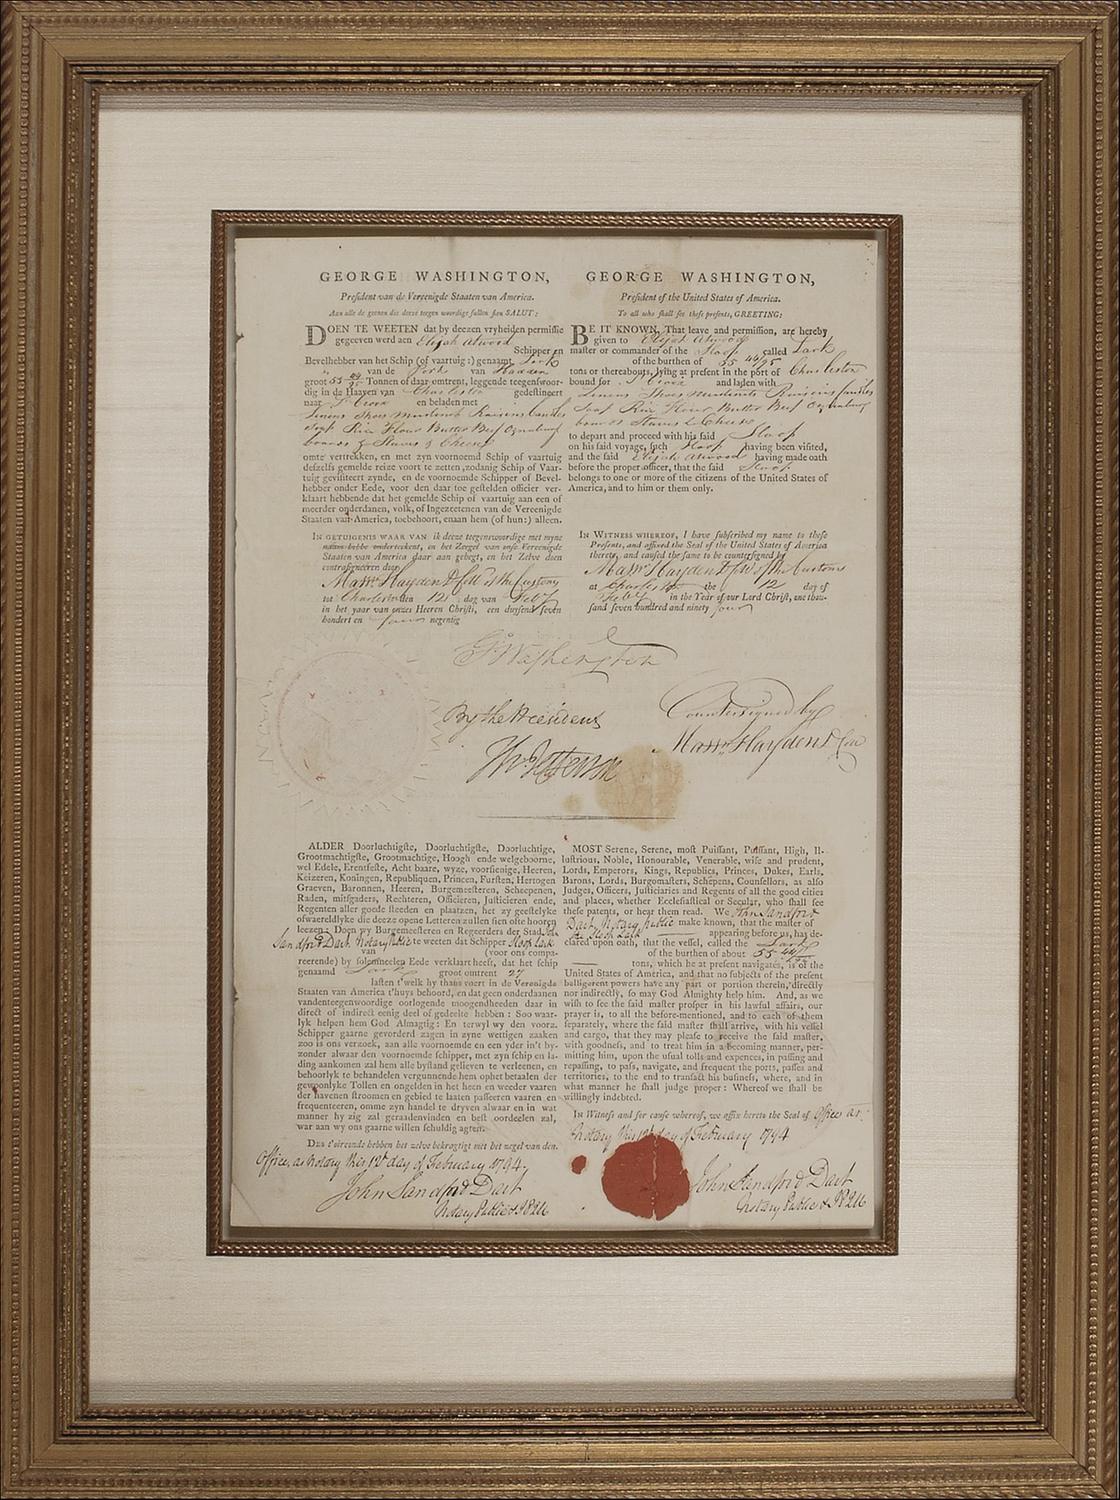 GEORGE WASHINGTON,
President van de Vereenigde Staaten van America.
Aan alle de geenen die deeze teegen woordige sullen sien SALUT:
DOEN TE WEETEN dat by deezen vryheiden permissie
gegeeven werd aen Elijah Atwood
Schipper en
Bevelhebber van het Schip (of vaartuig:) genaamt Lark
van de York van Haddam
groot 55 44/95 Tonnen of daar omtrent, leggende teegenswoor-
dig in de Haaven van Charleston gedestineert
naar St Croix en beladen met
Linens Shoes Raisens Candles
Soap Rice Flour Butter Beef
boards & Staves & Cheese
omte vertrekken, en met zyn voornoemd Schip of vaartuig
deszelfs gemelde reize voort te zetten, zodanig Schip of Vaar-
tuig gevisiteert zynde, en de voornoemde Schipper of Bevel-
hebber onder Eede, voor den daar toe gestelden officier ver-
klaart hebbende dat het gemelde Schip of vaartuig aan een of
meerder onderdanen, volk, of Ingezeetenen van de Vereenigde
Staaten van America, toebehoort, enaan hem (of hun:) alleen.
IN GETUIGENIS WAAR VAN ik deeze teegenwoordige met myne
naam hebbe onderteekent, en het Zeegel van onse Vereenigde
Staaten van America daar aan gehegt, en het Zelve doen
contrasigneeren door
Hayden D Coll of the Customs
tot Charleston den 12 dag van Feby
in het yaar van onzes Heeren Christi, een duysend seven
hondert en four negentig
GEORGE WASHINGTON,
President of the United States of America.
To all who shall see these presents, GREETING:
BE IT KNOWN, That leave and permission, are hereby
given to Elijah Atwood
master or commander of the Sloop called Lark
of the burthen of 55 44/95
tons or thereabouts, lying at present in the port of Charleston
bound for St Croix and laden with
Linens Shoes Raisins Candles
Soap Rice Flour Butter Beef
boards Staves & Cheese
to depart and proceed with his said Sloop
on his said voyage, such Sloop having been visited,
and the said Elijah Atwood having made oath
before the proper officer, that the said Sloop
belongs to one or more of the citizens of the United States of
America, and to him or them only.
IN WITNESS WHEREOF, I have subscribed my name to these
Presents, and affixed the Seal of the United States of America
thereto, and caused the same to be countersigned by
Hayden D of the Customs
at Charleston the 12 day of
Feby in the Year of our Lord Christ, one thou-
sand seven hundred and ninety four
Go Washington
By the President
Th: Jefferson
Countersigned by
Hayden D
ALDER Doorluchtigste, Doorluchtigste, Doorluchtige,
Grootmachtigste, Grootmachtige, Hoogh ende welgeboorne,
wel Edele, Erentfeste, Acht baare, wyze, voorsienige, Heeren,
Keizeren, Koningen, Republiquen, Princen, Fursten, Hertogen
Graeven, Baronnen, Heeren, Burgemeesteren, Scheepenen,
Raden, mitsgaders, Rechteren, Officieren, Justicieren ende,
Regenten aller goede steeden en plaatzen, het zy geestelyke
ofwaereldlyke die deeze opene Letteren zullen sien ofte hooren
leezen: Doen wy Burgemeesteren en Regeerders der Stad John
Sandford Dart Notary Public te weeten dat Schipper Sloop Lark
van (voor ons compa-
reerende) by solemneelen Eede verklaart heeft, dat het schip
genaamd Lark groot omtrent 27
lasten t'welk hy thans voert in de Verenigde
Staaten van America t'huys behoord, en dat geen onderdaanen
vandenteegenwoordige oorlogende moogendheeden daar in
direct of indirect eenig deel of gedeelte hebben: Soo waar-
lyk helpen hem God Almagtig: En terwyl wy den voorz.
Schipper gaarne gevorderd zagen in zyne wettigen zaaken
zoo is ons verzoek, aan alle voornoemde en een yder in't by-
zonder alwaar den voornoemde schipper, met zyn schip en la-
ding aankomen zal hem alle bystand gelieven te verleenen, en
behoorlyk te behandelen vergunnende hem ophet betaalen der
gewoonlyke Tollen en ongelden in het heen en weeder vaaren
der havenen stroomen en gebied te laaten passeeren vaaren en
frequenteeren, omme zyn handel te dryven alwaar en in wat
manner hy zig zal geraadenvinden en best oordeelen zal,
war aan wy ons gaarne willen schuldig agten.
DES t'oirconde hebben het zelve bekragtigt met het zegel van den.
Office, as Notary this 12th day of February 1794.
John Sandford Dart
Notary Public
MOST Serene, Serene, most Puissant, Puissant, High, Il-
lustrious, Noble, Honourable, Venerable, wise and prudent,
Lords, Emperors, Kings, Republics, Princes, Dukes, Earls,
Barons, Lords, Burgomasters, Schepens, Counsellors, as also
Judges, Officers, Justiciaries and Regents of all the good cities
and places, whether Ecclesiastical or Secular, who shall see
these patents, or hear them read. We John Sandford
Dart Notary Public make known, that the master of
the Sloop Lark appearing before us, has de-
clared upon oath, that the vessel, called the Lark
of the burthen of about 55 44/95
tons, which he at present navigates, is of the
United States of America, and that no subjects of the present
balligerent powers have any part or portion therein, directly
nor indirectly, so may God Almighty help him. And, as we
wish to see the said master prosper in his lawful affairs, our
prayer is, to all the before-mentioned, and to each of them
separately, where the said master shall arrive, with his vessel
and cargo, that they may please to receive the said master,
with goodness, and to treat him in a becoming manner, per-
mitting him, upon the usual tolls and expences, in passing and
repassing, to pass, navigate, and frequent the ports, passes and
territories, to the end to transact his business, where, and in
what manner he shall judge proper: Whereof we shall be
willingly indebted.
In Witness and for cause whereof, we affix hereto the Seal of Office as
Notary this 12th day of February 1794
John Sandford Dart
Notary Public